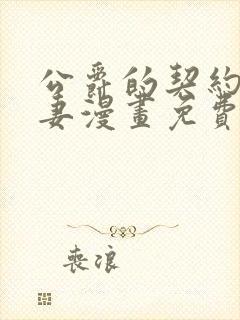 公爵的契約
妻漫畫免費
喪浪